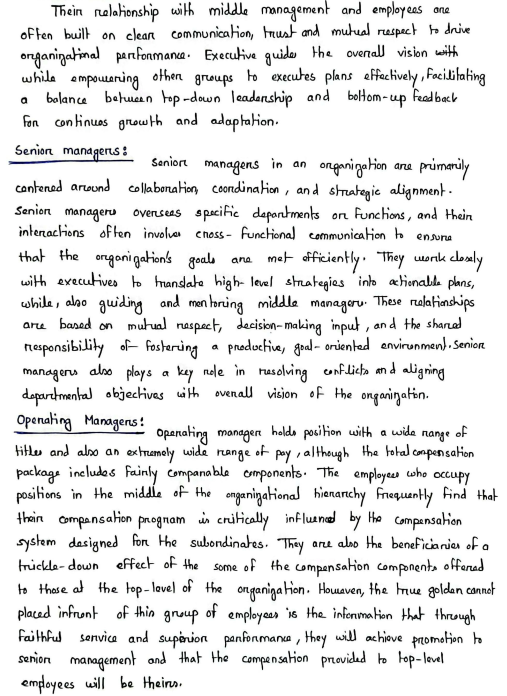 Their relationship with middle management and employees are
often built on clear communication, trust and mutual respect to drive
organizational performance. Executive guides the overall vision with
while empowering other groups to executes plans effectively, facilitating
a balance between top-down leadership and bottom-up feedback
for continues growth and adaptation.
Senior managers:
Senior managers in an organization are primarily
centered around collaboration, coordination, and strategic alignment.
Senior managers oversees specific departments or functions, and their
interactions often involve cross-functional communication to ensure
that the organization's goals are met efficiently. They work closely
with executives to translate high-level strategies into actionable plans,
while, also guiding and mentoring middle managers. These relationships
are based on mutual respect, decision-making input, and the shared
responsibility of fostering a productive, goal-oriented environment. Senior
managers also plays a key role in resolving conflicts and aligning
departmental objectives with overall vision of the organization.
Operating Managers:
Operating manager holds position with a wide range of
titles and also an extremely wide range of pay, although the total compensation
package includes fairly comparable components. The employees who occupy
positions in the middle of the organizational hierarchy frequently find that
their compensation program is critically influenced by the compensation
system designed for the subordinates. They are also the beneficiaries of a
trickle-down effect of the some of the compensation components offered
to those at the top-level of the organization. However, the true golden carrot
placed infront of this group of employees is the information that through
faithful service and superior performance, they will achieve promotion to
senior management and that the compensation provided to top-level
employees will be theirs.